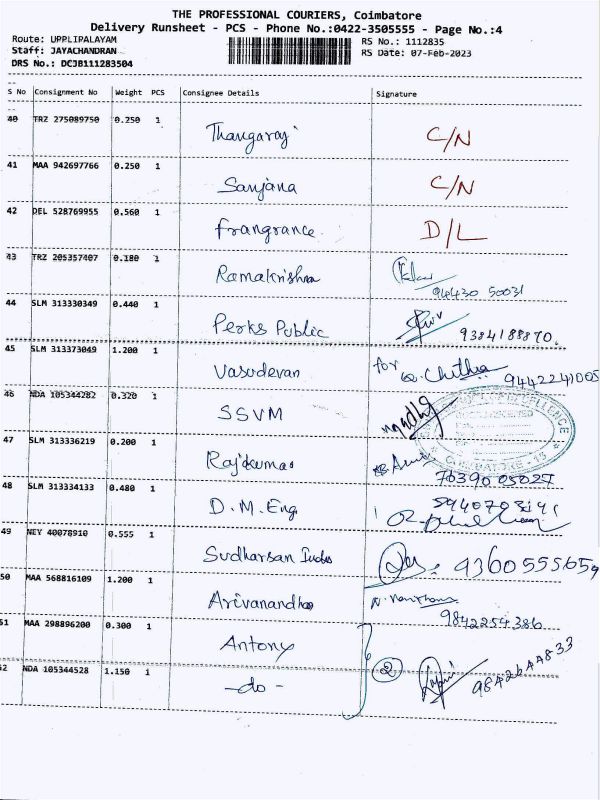 THE PROFESSIONAL COURIERS, Coimbatore
Delivery Runsheet - PCS - Phone No.:0422-3505555 - Page No.:4
Route: UPPLIPALAYAM RS No.: 1112835
Staff: JAYACHANDRAN RS Date: 07-Feb-2023
DRS No.: DCJB111283504
S No Consignment No Weight PCS Consignee Details Signature
40 TRZ 275089750 0.250 1 Thangaraj C/N
41 MAA 942697766 0.250 1 Sanjana C/N
42 DEL 528769955 0.560 1 Frangrance D/L
43 TRZ 205357407 0.180 1 Ramakrishna
94430 50031
44 SLM 313330349 0.440 1 Perks Public 9384188870.
45 SLM 313373049 1.200 1 Vasudevan for Chithra 9442241005
46 NDA 105344282 0.320 1 SSVM
47 SLM 313336219 0.200 1 Rajkumar
7639005027
48 SLM 313334133 0.480 1 D.M.Eng
49 NEY 40078910 0.555 1 Sudharsan Indus 9360555659
50 MAA 568816109 1.200 1 Arivanandha
9842254386
51 MAA 298896200 0.300 1 Antony
52 NDA 105344528 1.150 1 -do- 2 9842644833